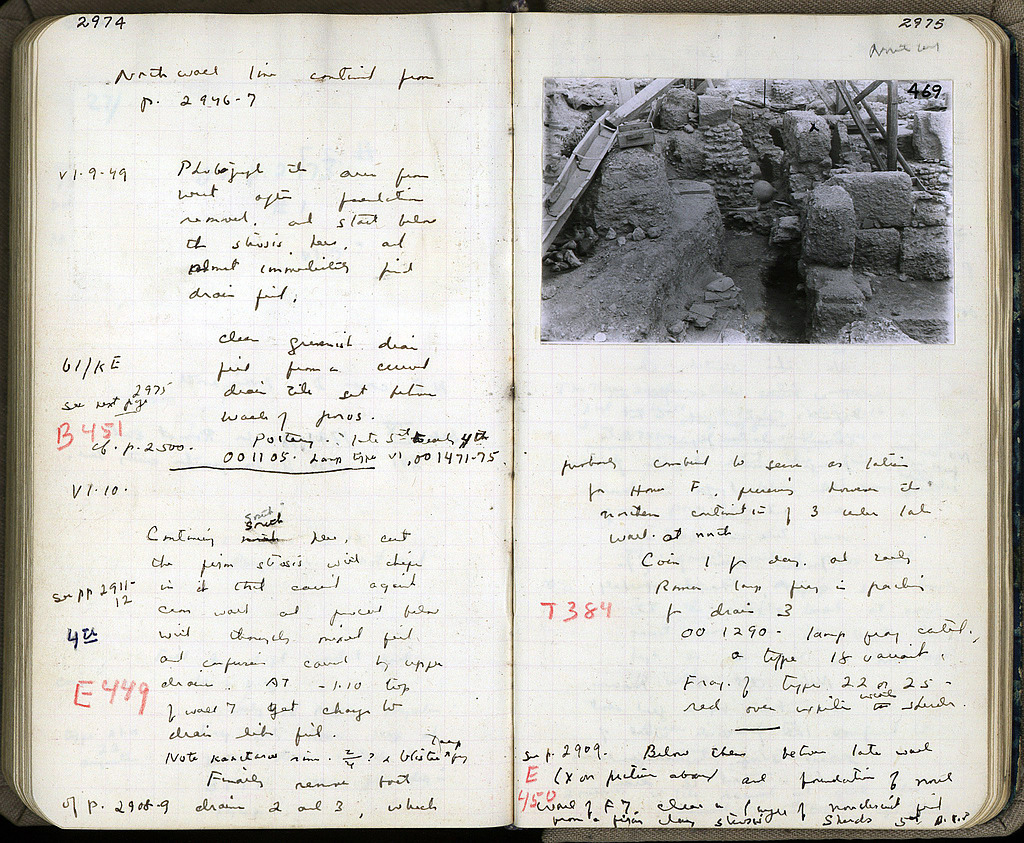 2974
North wall line continued from
p. 2946-7
VI-9-49
Photograph the area from
west after foundation
removed. and start below
the stosis here, and
almost immediately find
drain fill,
61/KE
see next page
2975
B 451
cf. p. 2500.
clean greenish drain
fill from a curved
drain tile set between
walls of poros.
Pottery: late 5th to early 4th
001105. Lamp type VI, 001471-75.
VI-10.
see pp 2911-
12
4th
E 449
south
south
Continuing here, cut
the firm stosis with chips
in it that cannot against
cross wall and proceed below
with thoroughly mixed fill
and confusion caused by upper
drain. AT -1.10 top
of wall 7 get change to
drain like fill.
Note kantharos rim.
Finally remove both
cf p. 2908-9 drains 2 and 3, which
2975
North wall
469
X
probably combined to serve as latrine
for House F, preserving however the
northern continuation of 3 under late
wall at north
Coin 1 for day. and early
Roman lamp frag in packing
for drain 3
T 384
001290- lamp frag
a type 18 variant,
Frag. of type 22 or 25 -
red over white with sherds.
see p. 2909.
E
450
Below these between late wall
(X on picture above) and foundation of
wall of F7, clear a layer of nondescript fill
from a firm clay stosis. Sherds 5th